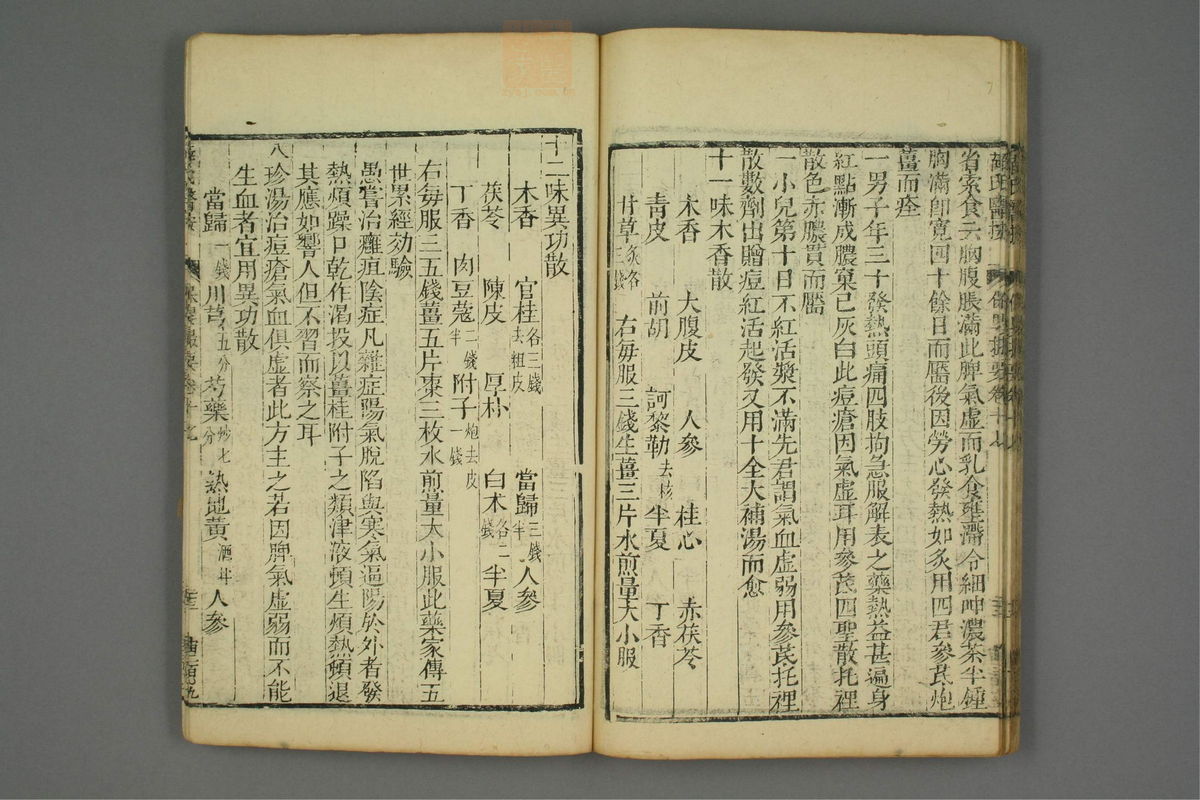 省索食云胸腹脹滿此脾氣虛而乳食壅滯令細呷濃茶半鍾
胸滿卽寬四十餘日而靨後因勞心發熱如炙用四君參芪炮
薑而痊
一男子年三十發熱頭痛四肢拘急服解表之藥熱益甚遍身
紅點漸成膿窠已灰白此痘瘡因氣虛耳用參芪四聖散托裡
散色赤膿貫而靨
一小兒第十日不紅活漿不滿先君謂氣血虛弱用參芪托裡
散數劑出贈痘紅活起發又用十全大補湯而愈
十一味木香散
木香 大腹皮 人參 桂心 赤茯苓
青皮 前胡 訶黎勒去核 半夏 丁香
甘草炙各三錢 右每服三錢生薑三片水煎量大小服
十二味異功散
木香 官桂各三錢去粗皮 當歸三錢半 人參
茯苓 陳皮 厚朴 白朮各二錢 半夏
丁香 肉豆蔻二錢半 附子炮去皮一錢
右每服三五錢薑五片棗三枚水煎量大小服此藥家傳五
世累經効驗
愚嘗治癰疽陰症凡雜症陽氣脫陷與寒氣逼陽於外者發
熱煩躁口乾作渴投以薑桂附子之類津液頓生煩熱頓退
其應如響人但不習而察之耳
八珍湯治痘瘡氣血俱虛者此方主之若因脾氣虛弱而不能
生血者宜用異功散
當歸一錢 川芎五分 芍藥炒七分 熟地黃酒拌 人參